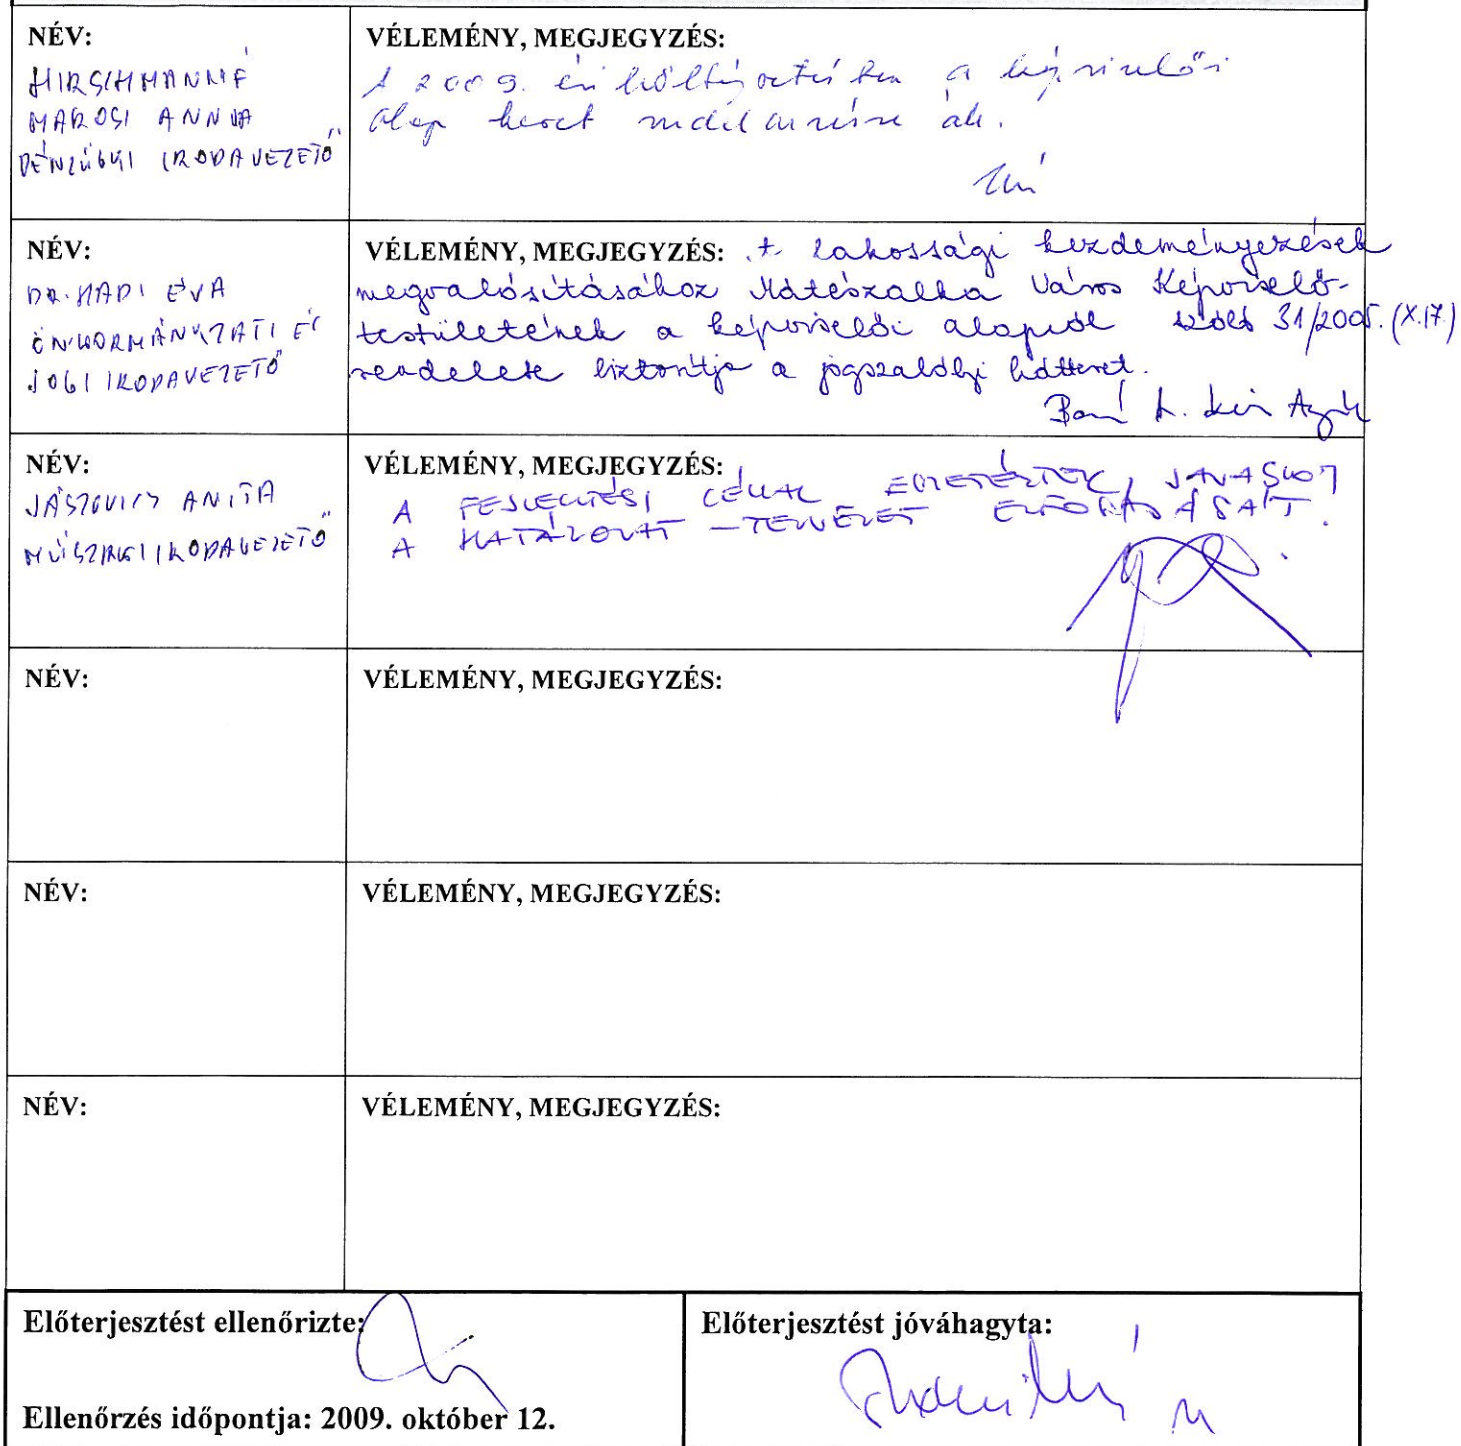 NÉV:
HIRSCHMANNNÉ
MAROSI ANNA
PÉNZÜGYI IRODAVEZETŐ
VÉLEMÉNY, MEGJEGYZÉS:
A 2009. évi költségvetésben a képviselői
alap keret rendelkezésre áll.
NÉV:
DR. HADI ÉVA
ÖNKORMÁNYZATI ÉS
JOGI IRODAVEZETŐ
VÉLEMÉNY, MEGJEGYZÉS: A lakossági kezdeményezések
megvalósításához Mátészalka Város Képviselő-
testületének a képviselői alapról szóló 31/2005. (X.17.)
rendelete biztosítja a jogszabályi hátteret.
NÉV:
JÁSZOVICS ANITA
MŰSZAKI IRODAVEZETŐ
VÉLEMÉNY, MEGJEGYZÉS:
A FEJLESZTÉSI CÉLLAL EGYETÉRTEK, JAVASLOM
A HATÁROZAT-TERVEZET ELFOGADÁSÁT.
NÉV:
VÉLEMÉNY, MEGJEGYZÉS:
NÉV:
VÉLEMÉNY, MEGJEGYZÉS:
NÉV:
VÉLEMÉNY, MEGJEGYZÉS:
Előterjesztést ellenőrizte:
Ellenőrzés időpontja: 2009. október 12.
Előterjesztést jóváhagyta: